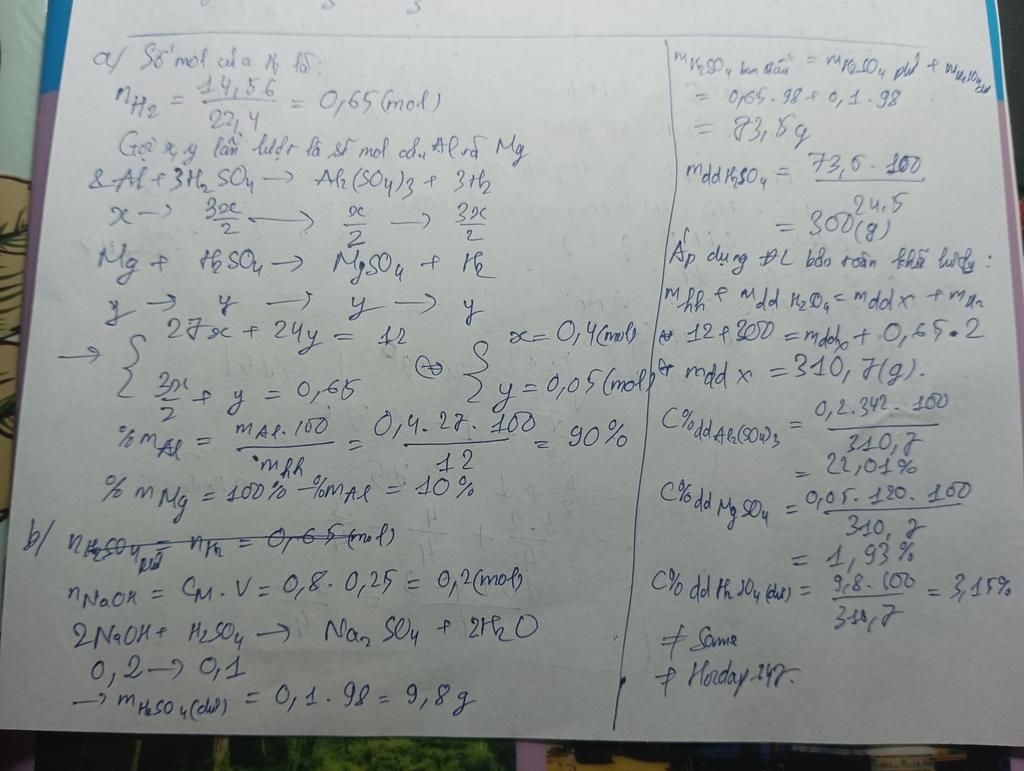 a/ Số mol của H₂ là:
n_H₂ = 14,56/22,4 = 0,65 (mol)
Gọi x, y lần lượt là số mol của Al và Mg
2Al + 3H₂SO₄ → Al₂(SO₄)₃ + 3H₂
x → 3x/2 → x/2 → 3x/2
Mg + H₂SO₄ → MgSO₄ + H₂
y → y → y → y
→ { 27x + 24y = 12 ; 3x/2 + y = 0,65 ⇔ { x = 0,4 (mol) ; y = 0,05 (mol)
%m_Al = m_Al.100/m_hh = 0,4.27.100/12 = 90%
%m_Mg = 100% - %m_Al = 10%
b/ n_H₂SO₄ pứ = n_H₂ = 0,65 (mol)
n_NaOH = C_M.V = 0,8.0,25 = 0,2 (mol)
2NaOH + H₂SO₄ → Na₂SO₄ + 2H₂O
0,2 → 0,1
→ m_H₂SO₄(dư) = 0,1.98 = 9,8g
m_H₂SO₄ ban đầu = m_H₂SO₄ pứ + m_H₂SO₄ dư
= 0,65.98 + 0,1.98
= 73,5g
m_dd H₂SO₄ = 73,5.100/24,5
= 300(g)
Áp dụng ĐL bảo toàn khối lượng:
m_hh + m_dd H₂SO₄ = m_dd X + m_H₂
⇔ 12 + 300 = m_dd X + 0,65.2
⇔ m_dd X = 310,7(g).
C%dd Al₂(SO₄)₃ = 0,2.342.100/310,7
= 22,01%
C%dd MgSO₄ = 0,05.120.100/310,7
= 1,93%
C%dd H₂SO₄(dư) = 9,8.100/310,7 = 3,15%
# Sama
# Hoidap247.